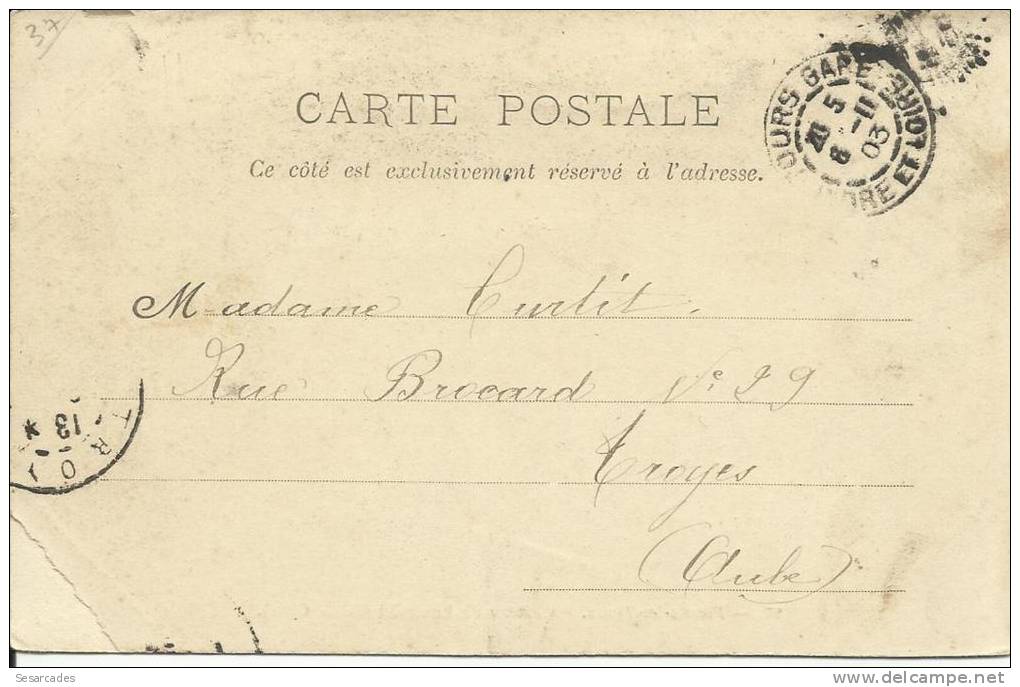 37
CARTE POSTALE
Ce côté est exclusivement réservé à l'adresse.
TOURS GARE
INDRE ET LOIRE
20 5
8 -11
03
Madame Curtit.
Rue Brocard N° 29
Troyes
(Aube)
TROY
13
Sesarcades
www.delcampe.net